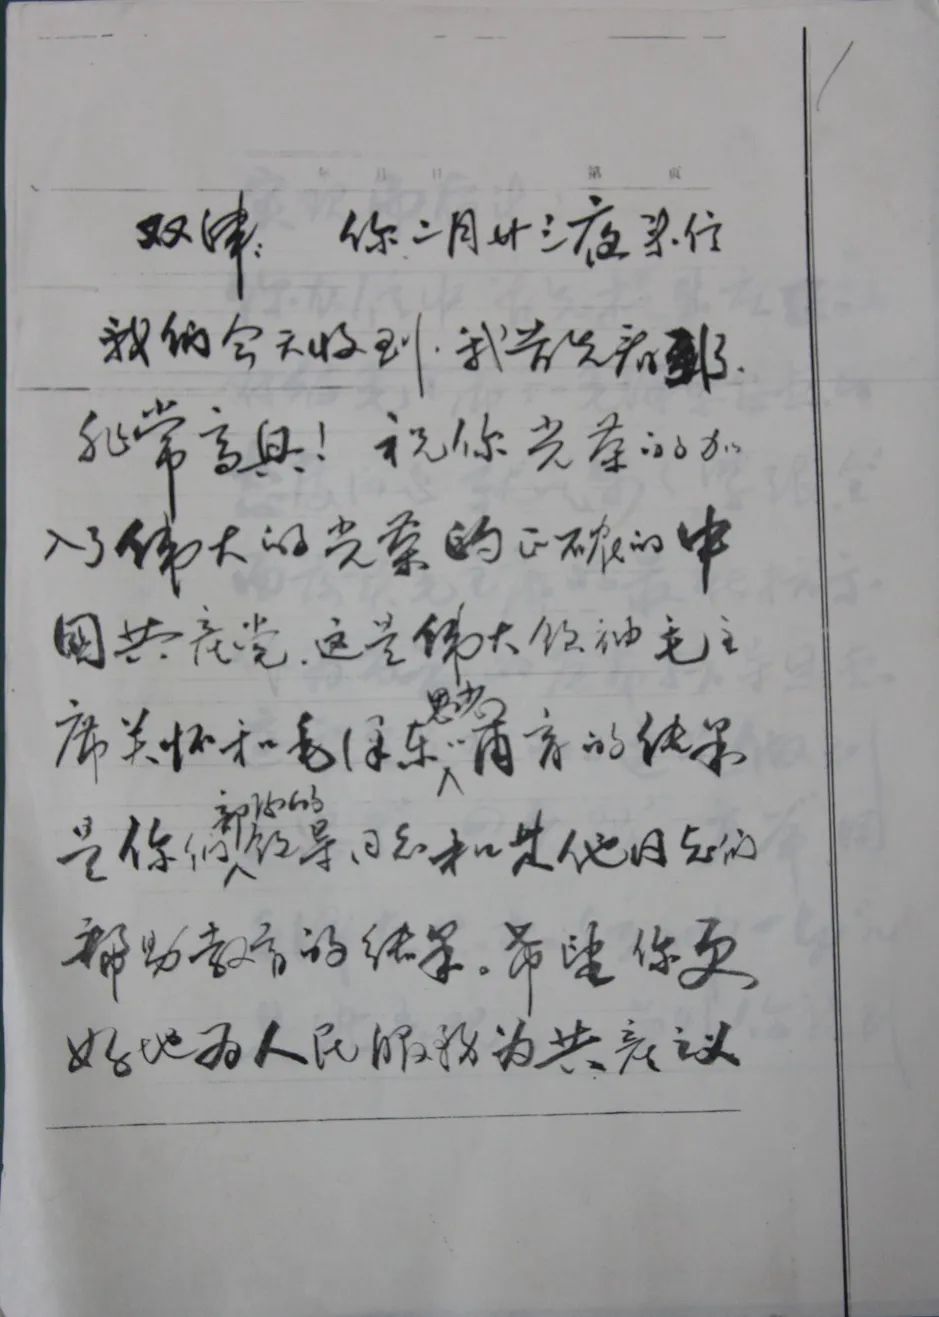 年 月 日 第 页
双津： 你二月廿三夜来信
我们今天收到.我首先看到了.
非常高兴！ 祝你光荣的加
入了伟大的光荣的正确的中
国共产党.这是伟大领袖毛主
席关怀和毛泽东思想甫育的结果
是你们部队的领导同志和其他同志们
帮助教育的结果。希望你更
好地为人民服务为共产主义